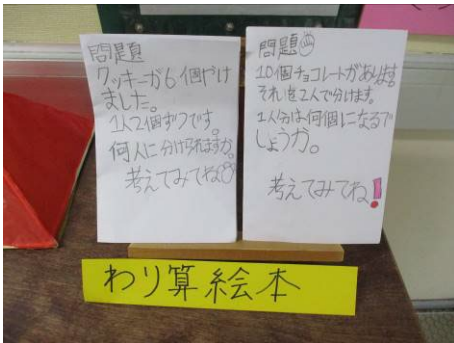 問題
クッキーが6個やけ
ました。
1人2個ずつです。
何人に分けられますか。
考えてみてね
問題
10個チョコレートがあります。
それを2人で分けます。
1人分は何個になるで
しょうか。
考えてみてね!
わり算絵本